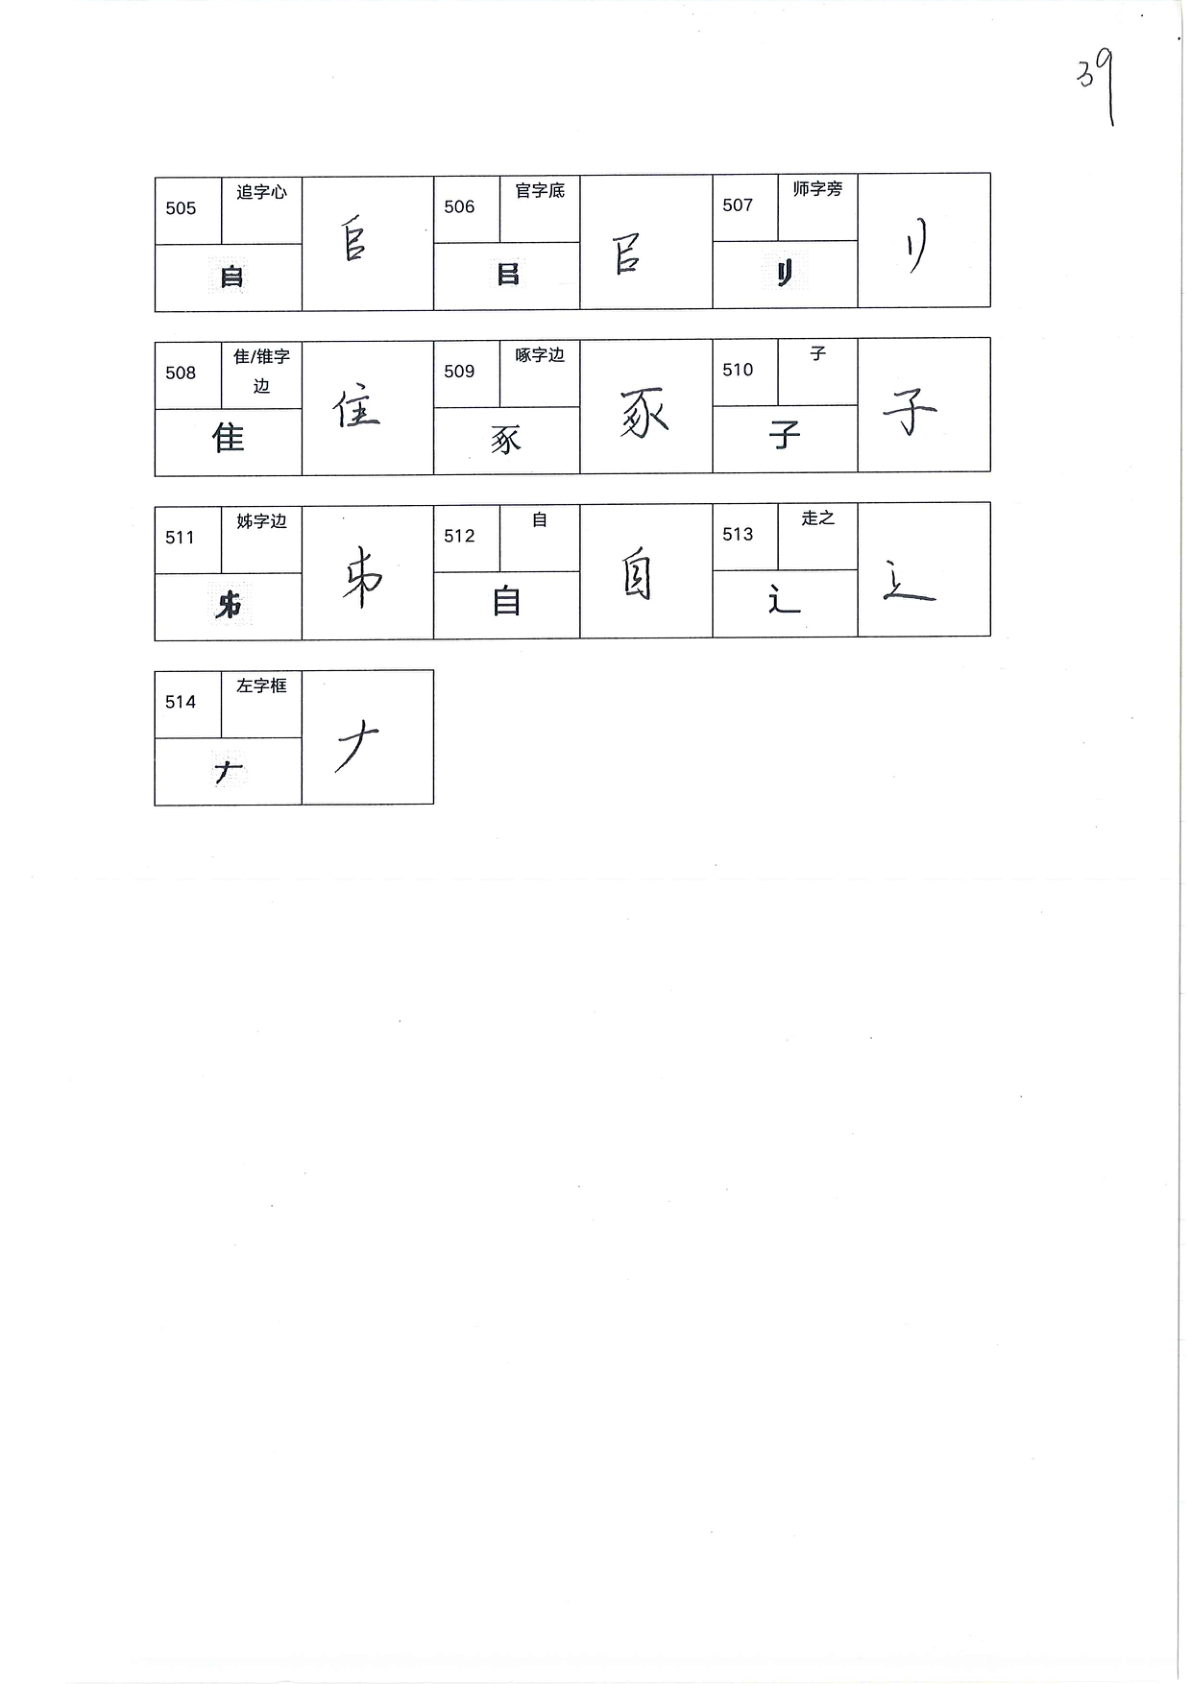 39
505 追字心 𠂤 𠂤 506 官字底 㠯 㠯 507 师字旁 刂 刂
508 隹/锥字边 隹 隹 509 啄字边 豖 豖 510 子 子 子
511 姊字边 𠂔 𠂔 512 自 自 自 513 走之 辶 辶
514 左字框 𠂇 𠂇